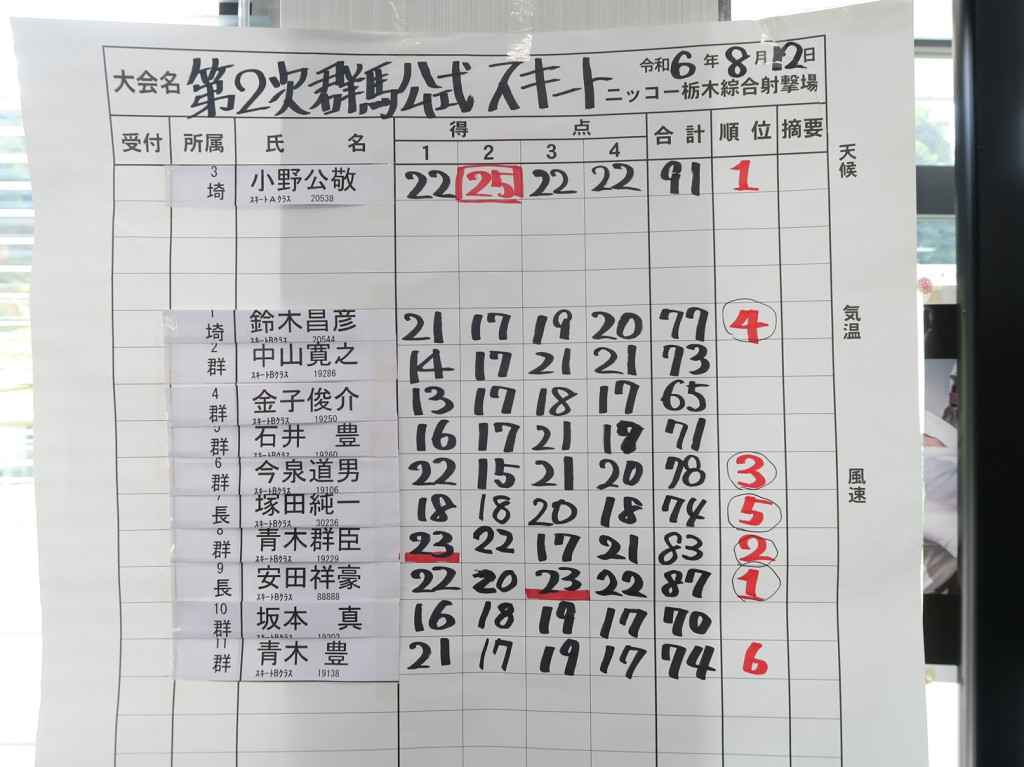 大会名 第2次群馬公式 スキート 令和6年8月12日
ニッコー栃木綜合射撃場
受付 所属 氏名 得点 合計 順位 摘要
1 2 3 4
3 埼 小野公敬 22 25 22 22 91 1
スキートAクラス 20538
1 埼 鈴木昌彦 21 17 19 20 77 4
スキートBクラス 20544
2 群 中山寛之 14 17 21 21 73
スキートBクラス 19286
4 群 金子俊介 13 17 18 17 65
スキートBクラス 19250
5 群 石井 豊 16 17 21 17 71
スキートBクラス 19260
6 群 今泉道男 22 15 21 20 78 3
スキートBクラス 19106
7 長 塚田純一 18 18 20 18 74 5
スキートBクラス 30236
8 群 青木群臣 23 22 17 21 83 2
スキートBクラス 19229
9 長 安田祥豪 22 20 23 22 87 1
スキートBクラス 88888
10 群 坂本 真 16 18 19 17 70
スキートBクラス
11 群 青木 豊 21 17 19 17 74 6
スキートBクラス 19138
天候
気温
風速